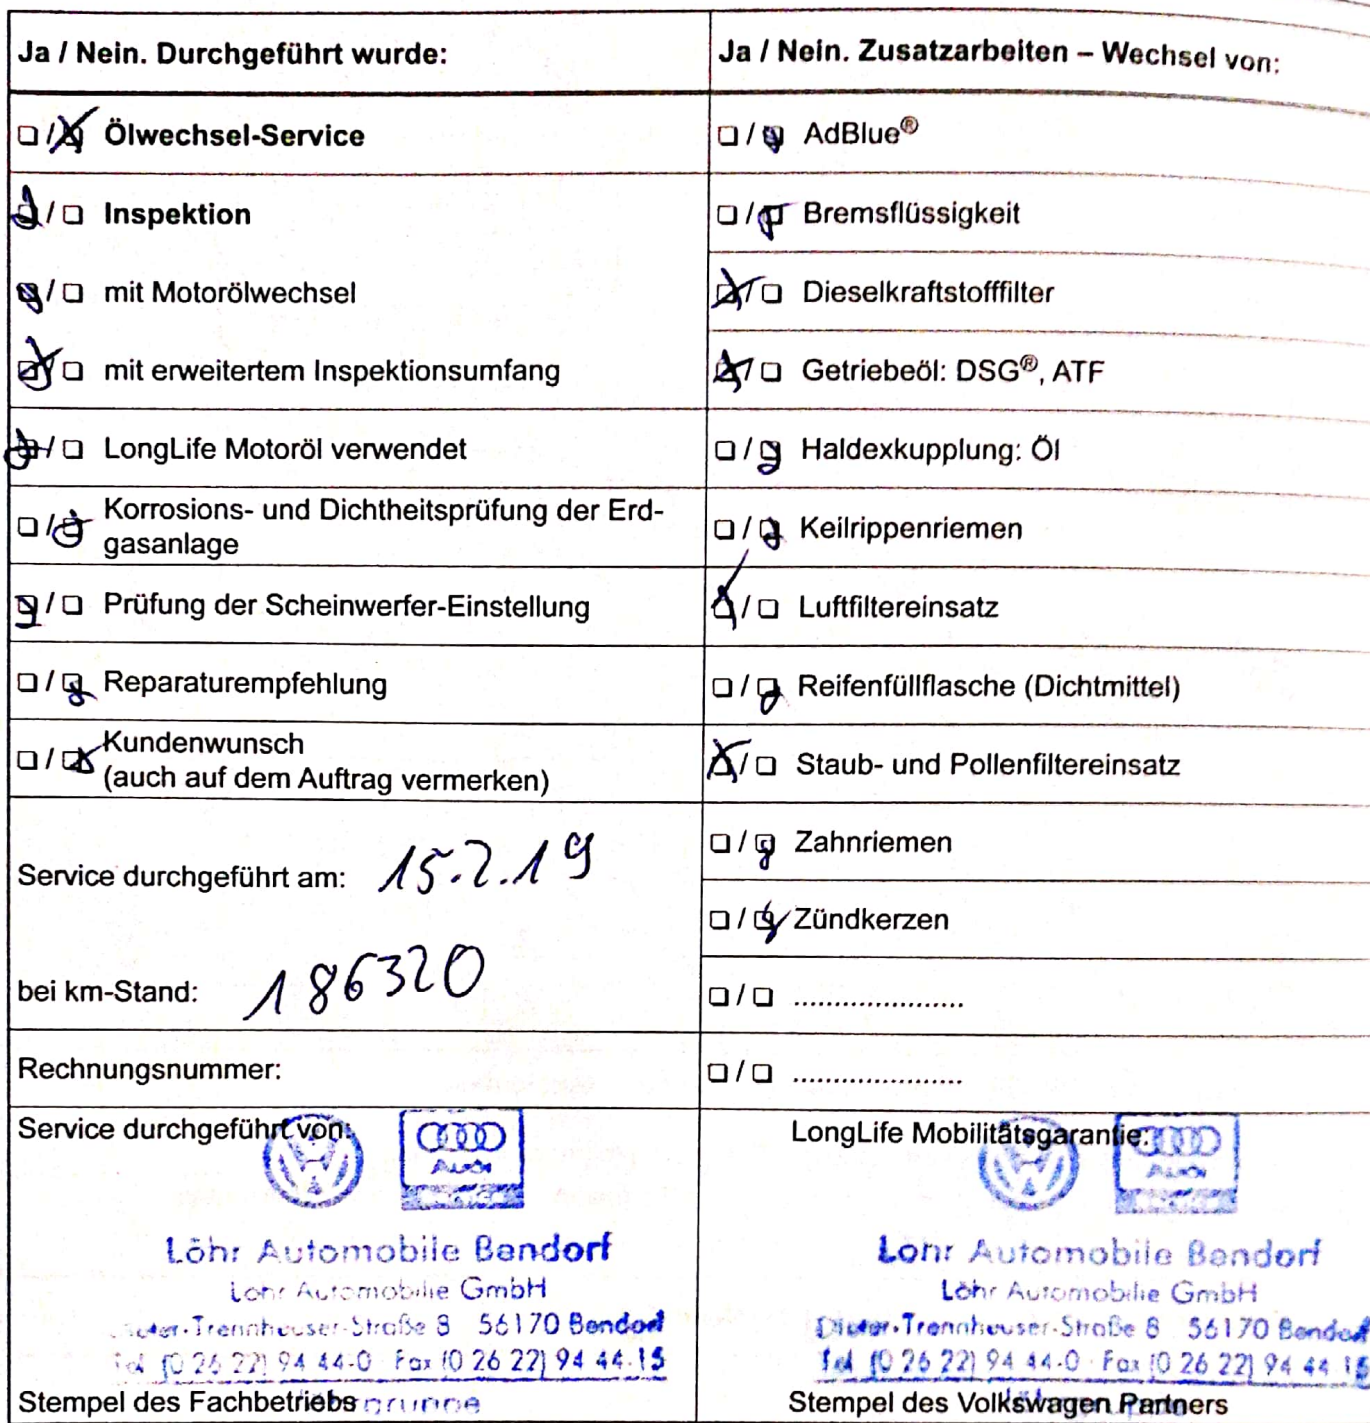 Ja / Nein. Durchgeführt wurde:
☐/☒ Ölwechsel-Service
☒/☐ Inspektion
☒/☐ mit Motorölwechsel
☒/☐ mit erweitertem Inspektionsumfang
☒/☐ LongLife Motoröl verwendet
☐/☒ Korrosions- und Dichtheitsprüfung der Erd-
gasanlage
☒/☐ Prüfung der Scheinwerfer-Einstellung
☐/☒ Reparaturempfehlung
☐/☒ Kundenwunsch
(auch auf dem Auftrag vermerken)
Service durchgeführt am: 15.2.19
bei km-Stand: 186320
Rechnungsnummer:
Service durchgeführt von:
Audi
Löhr Automobile Bendorf
Löhr Automobile GmbH
Dieter-Trennheuser-Straße 8 56170 Bendorf
Tel. (0 26 22) 94 44-0 Fax (0 26 22) 94 44-15
Stempel des Fachbetriebs
Ja / Nein. Zusatzarbeiten – Wechsel von:
☐/☒ AdBlue®
☐/☒ Bremsflüssigkeit
☒/☐ Dieselkraftstofffilter
☒/☐ Getriebeöl: DSG®, ATF
☐/☒ Haldexkupplung: Öl
☐/☒ Keilrippenriemen
☒/☐ Luftfiltereinsatz
☐/☒ Reifenfüllflasche (Dichtmittel)
☒/☐ Staub- und Pollenfiltereinsatz
☐/☒ Zahnriemen
☐/☒ Zündkerzen
☐/☐ .....................
☐/☐ .....................
LongLife Mobilitätsgarantie:
Audi
Löhr Automobile Bendorf
Löhr Automobile GmbH
Dieter-Trennheuser-Straße 8 56170 Bendorf
Tel. (0 26 22) 94 44-0 Fax (0 26 22) 94 44 15
Stempel des Volkswagen Partners